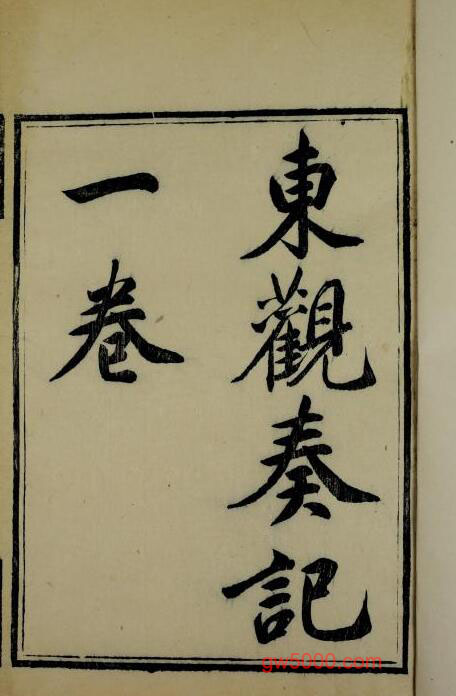 東觀奏記
一卷
gw5000.com